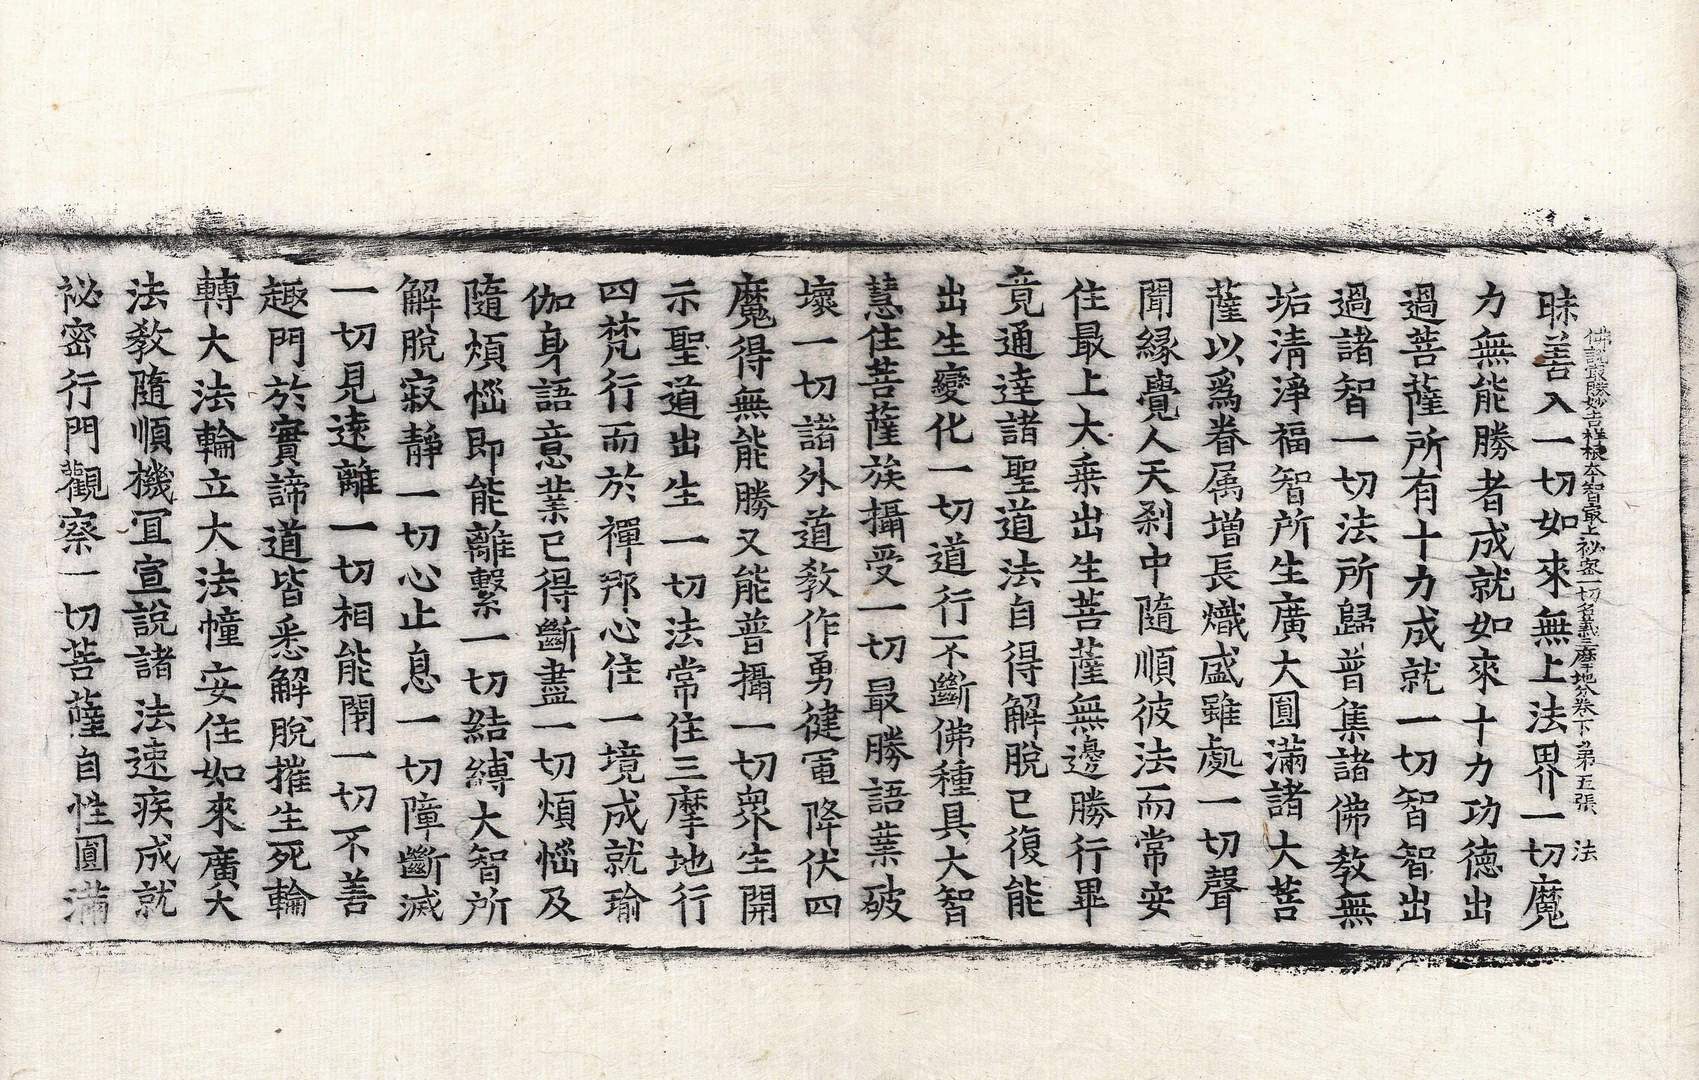 佛說最勝妙吉祥根本智最上祕密一切名義三摩地分卷下 第五張 法
昧善入一切如來無上法界一切魔
力無能勝者成就如來十力功德出
過菩薩所有十力成就一切智智出
過諸智一切法所歸普集諸佛教無
垢清淨福智所生廣大圓滿諸大菩
薩以爲眷属增長熾盛雖處一切聲
聞緣覺人天刹中隨順彼法而常安
住最上大乘出生菩薩無邊勝行畢
竟通達諸聖道法自得解脫已復能
出生變化一切道行不斷佛種具大智
慧住菩薩族攝受一切最勝語業破
壞一切諸外道教作勇健軍降伏四
魔得無能勝又能普攝一切衆生開
示聖道出生一切法常住三摩地行
四梵行而於禪那心住一境成就瑜
伽身語意業已得斷盡一切煩惱及
隨煩惱即能離繫一切結縛大智所
解脫寂靜一切心止息一切障斷滅
一切見遠離一切相能閉一切不善
趣門於實諦道皆悉解脫摧生死輪
轉大法輪立大法幢安住如來廣大
法教隨順機冝宣說諸法速疾成就
祕密行門觀察一切菩薩自性圓滿